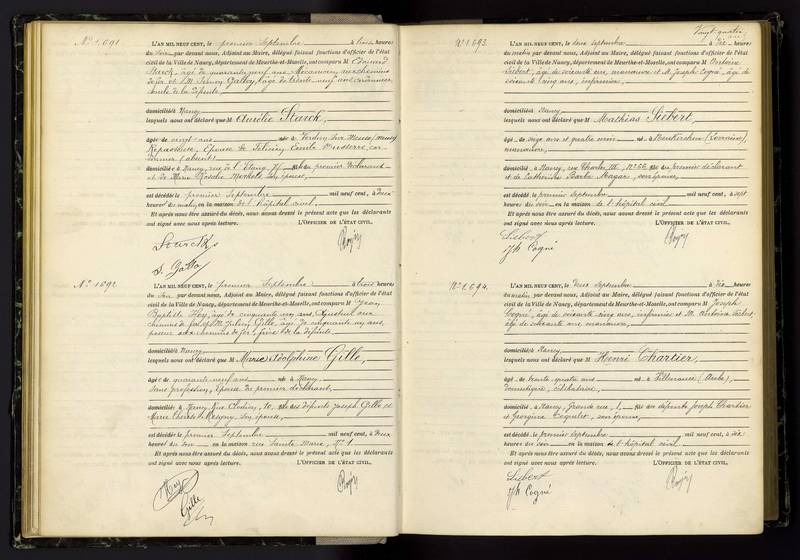 N° 1.691
L'AN MIL NEUF CENT, le premier Septembre à trois heures
du soir par devant nous, Adjoint au Maire, délégué faisant fonctions d'officier de l'état
civil de la Ville de Nancy, département de Meurthe-et-Moselle, ont comparu M Edmond
Starck, âgé de quarante neuf ans, Mécanicien aux chemins
de fer et M. Galloy, âgé de trente neuf ans
de la défunte
domiciliés à Nancy
lesquels nous ont déclaré que M Aurélie Starck,
âgée de vingt ans née à Verdun Sur Meuse (Meuse)
Repasseuse, Epouse de Emile
(absent)
domiciliée à Nancy, rue de l'Etang, fille du premier déclarant
et de Marie Rosalie son épouse,
est décédée le premier Septembre mil neuf cent, à Deux
heures du matin, en la maison de l'hôpital civil.
Et après nous être assuré du décès, nous avons dressé le présent acte que les déclarants
ont signé avec nous après lecture. L'OFFICIER DE L'ÉTAT CIVIL,
N° 1692
L'AN MIL NEUF CENT, le premier Septembre à trois heures
du Soir, par devant nous, Adjoint au Maire, délégué faisant fonctions d'officier de l'état
civil de la Ville de Nancy, département de Meurthe-et-Moselle, ont comparu M Jean
Baptiste Hoy, âgé de cinquante un ans, Ajusteur aux
chemins de fer et M. Julien Gille, âgé de cinquante un ans,
poseur aux chemins de fer, frère de la défunte
domiciliés à Nancy
lesquels nous ont déclaré que M Marie Adolphine Gille,
âgée de quarante neuf ans née à Nancy
Sans profession, Epouse du premier déclarant
domiciliée à Nancy, Rue Clodion, 10, fille des défunts Joseph Gille et
Marie Thérèse son épouse,
est décédée le premier Septembre mil neuf cent, à Deux
heures du soir en la maison rue Sainte Marie, N° 1
Et après nous être assuré du décès, nous avons dressé le présent acte que les déclarants
ont signé avec nous après lecture. L'OFFICIER DE L'ÉTAT CIVIL,
Hoy
Gille
Vingt-quatre
N° 1693.
L'AN MIL NEUF CENT, le deux septembre à dix heures
du matin par devant nous, Adjoint au Maire, délégué faisant fonctions d'officier de l'état
civil de la Ville de Nancy, département de Meurthe-et-Moselle, ont comparu M Antoine
Siebert, âgé de soixante ans, manœuvre et M. Joseph Cogné, âgé de
soixante cinq ans, infirmier,
domiciliés à Nancy
lesquels nous ont déclaré que M Mathias Siebert,
âgé de seize ans et quatre mois né à (Lorraine),
manœuvre,
domicilié à Nancy, rue Charles III, N° 66, fils du premier déclarant
et de Catherine Barbe Hagar, son épouse,
est décédé le premier Septembre mil neuf cent, à sept
heures du soir en la maison de l'hôpital civil
Et après nous être assuré du décès, nous avons dressé le présent acte que les déclarants
ont signé avec nous après lecture. L'OFFICIER DE L'ÉTAT CIVIL,
Siebert
Jh Cogné
N° 1694.
L'AN MIL NEUF CENT, le deux septembre à dix heures
du matin par devant nous, Adjoint au Maire, délégué faisant fonctions d'officier de l'état
civil de la Ville de Nancy, département de Meurthe-et-Moselle, ont comparu M Joseph
Cogné, âgé de soixante cinq ans, infirmier et M. Antoine Siebert,
âgé de soixante ans, manœuvre,
domiciliés à Nancy
lesquels nous ont déclaré que M Henri Chartier,
âgé de trente quatre ans né à Villenauxe (Aube),
Domestique, célibataire,
domicilié à Nancy, Grande rue, 1, fils des défunts Joseph Chartier
et Georgine Coquelet, son épouse,
est décédé le premier septembre mil neuf cent, à dix
heures du soir en la maison de l'hôpital civil
Et après nous être assuré du décès, nous avons dressé le présent acte que les déclarants
ont signé avec nous après lecture. L'OFFICIER DE L'ÉTAT CIVIL,
Siebert
Jh Cogné